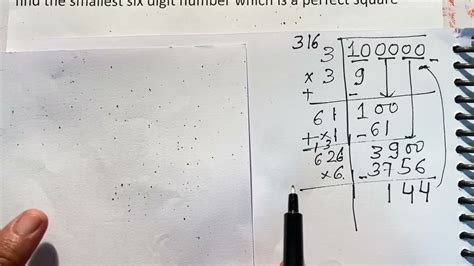 find the smallest six digit number which is a perfect square
316
3 100000
× 3 9
+ -
61 100
+ ×1 -61
626 3900
×6 -3756
144